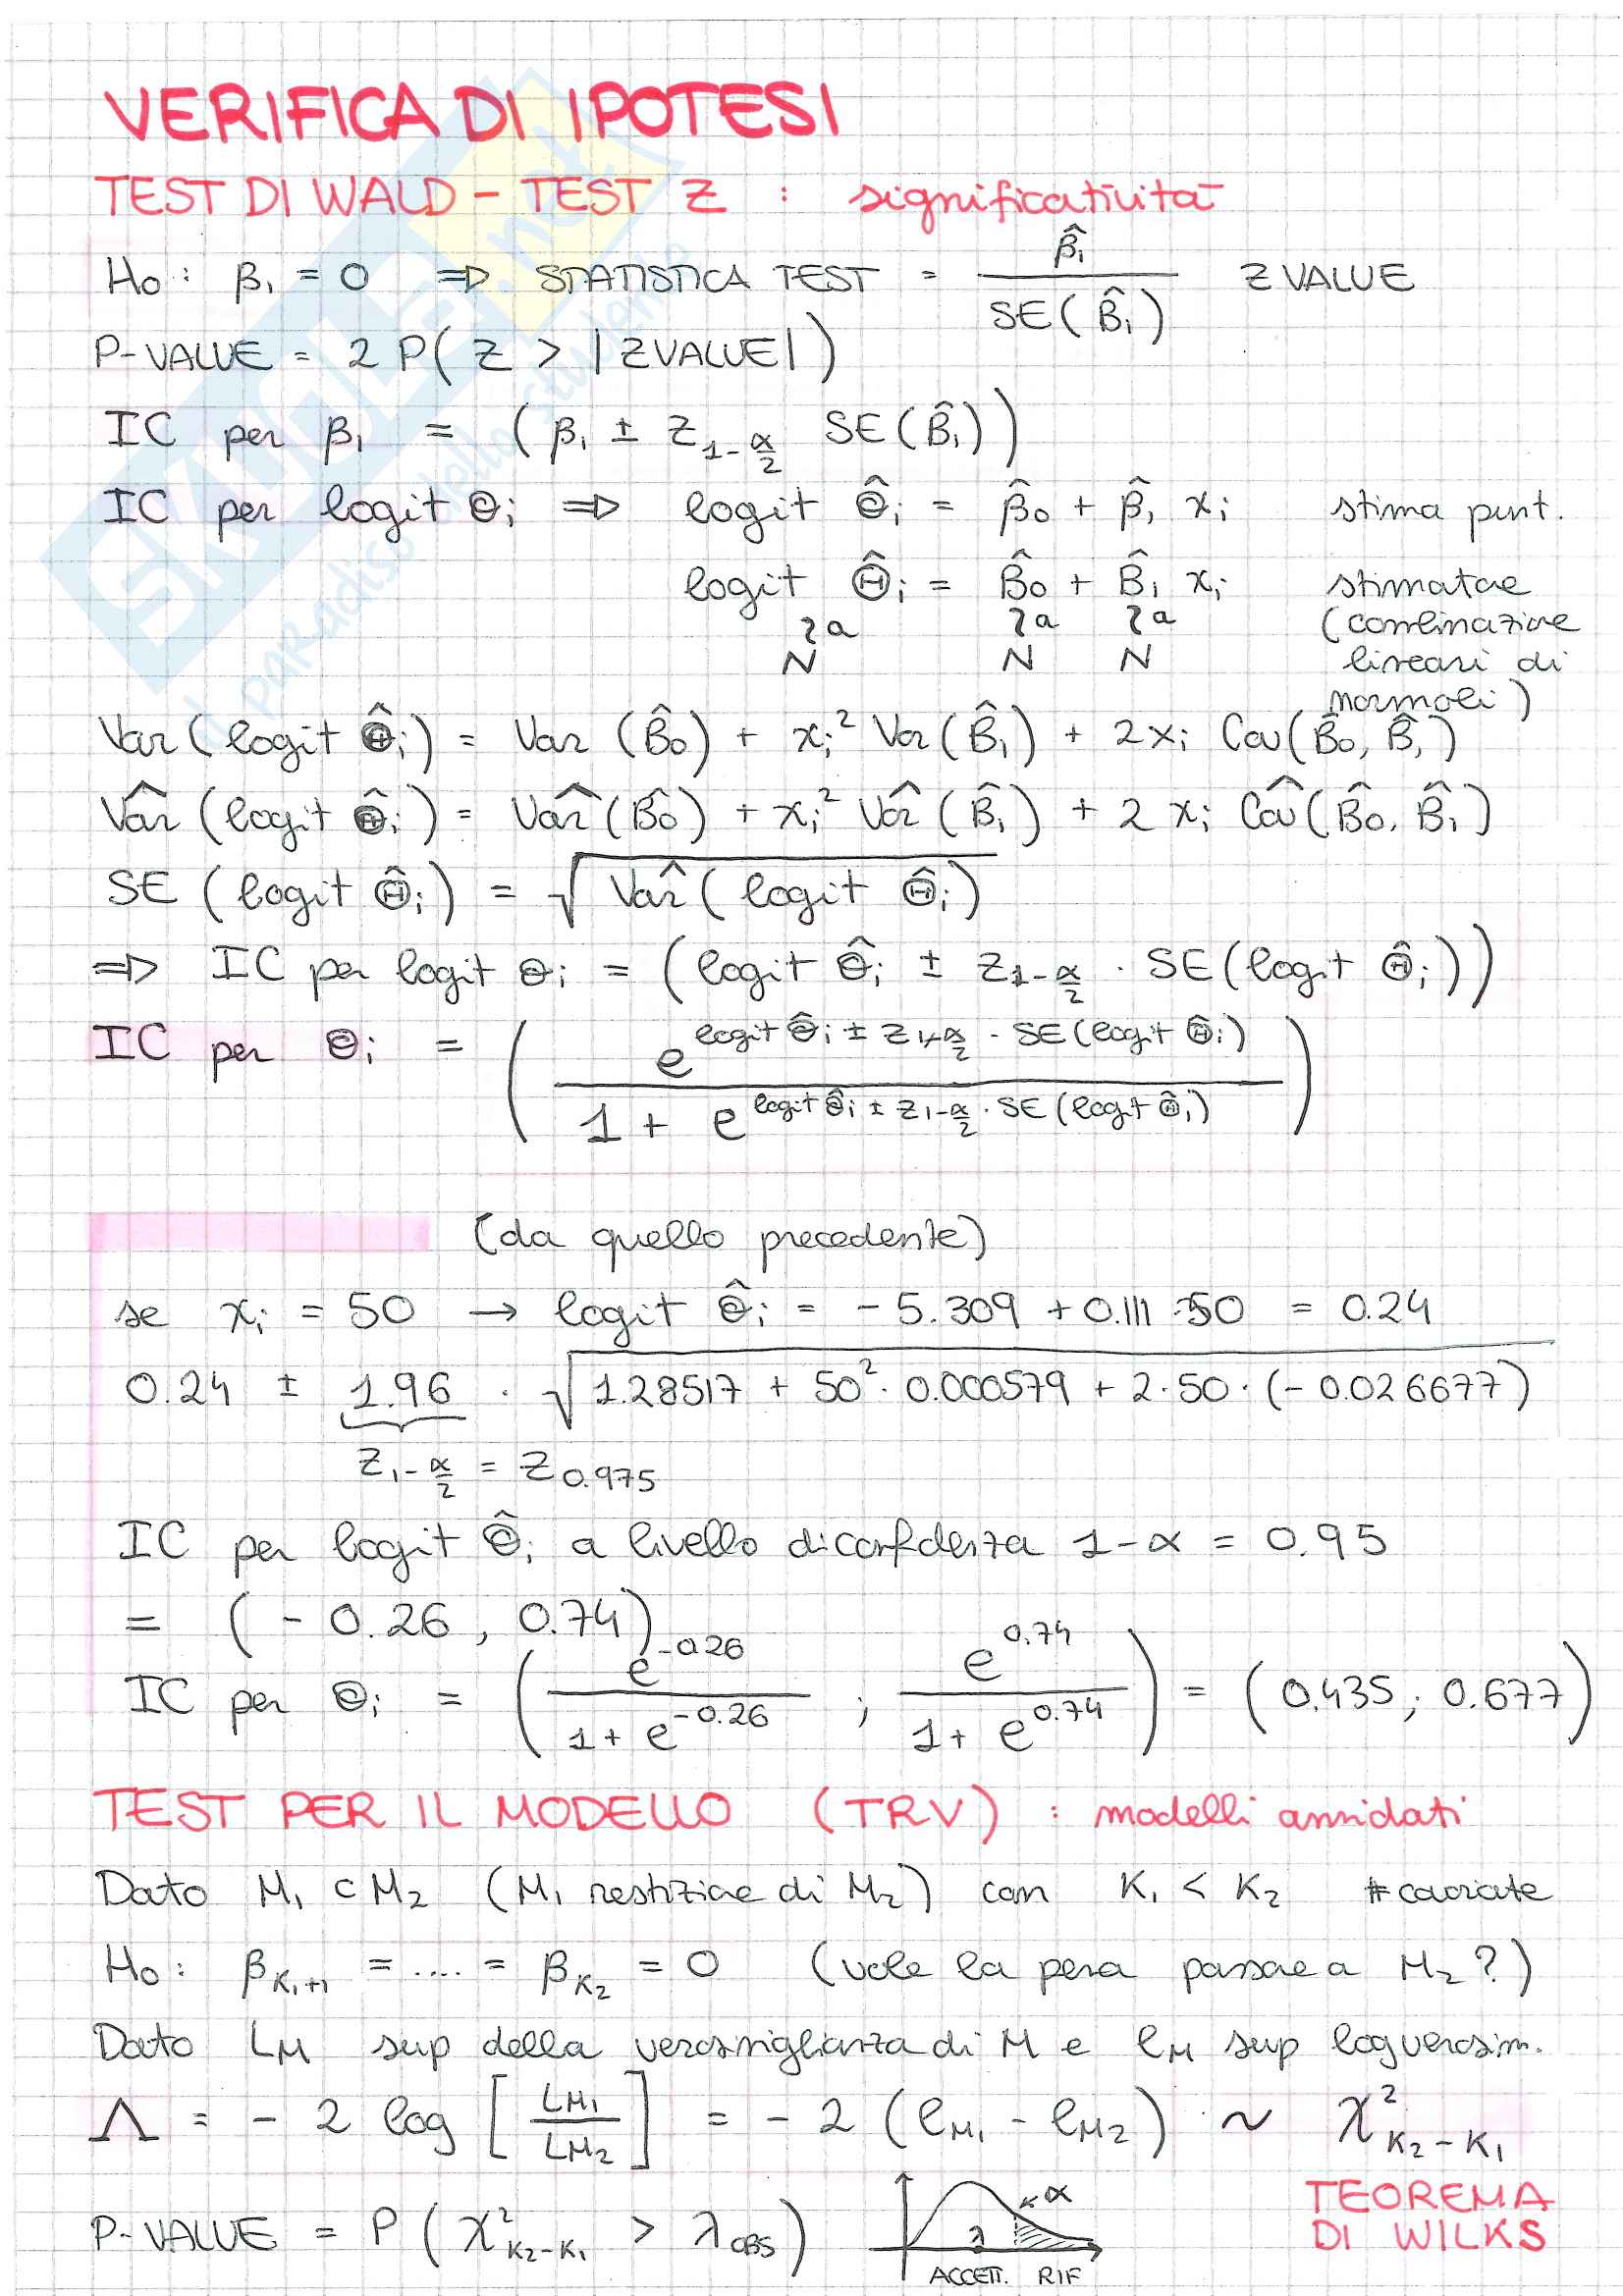 VERIFICA DI IPOTESI
TEST DI WALD - TEST Z : significatività
H₀: β₁ = 0 ⇒ STATISTICA TEST = β̂₁ / SE(B̂₁) Z VALUE
P-VALUE = 2 P(Z > |ZVALUE|)
IC per β₁ = (β₁ ± z_{1-α/2} SE(B̂₁))
IC per logit θᵢ ⇒ logit θ̂ᵢ = β̂₀ + β̂₁ xᵢ stima punt.
logit Θ̂ᵢ = B̂₀ + B̂₁ xᵢ stimatore
~a ~a ~a (combinazione
N N N lineari di
normali)
Var(logit Θ̂ᵢ) = Var(B̂₀) + xᵢ² Var(B̂₁) + 2xᵢ Cov(B̂₀, B̂₁)
V̂ar(logit Θ̂ᵢ) = V̂ar(B̂₀) + xᵢ² V̂ar(B̂₁) + 2xᵢ Ĉov(B̂₀, B̂₁)
SE(logit Θ̂ᵢ) = √V̂ar(logit Θ̂ᵢ)
⇒ IC per logit θᵢ = (logit θ̂ᵢ ± z_{1-α/2} · SE(logit Θ̂ᵢ))
IC per θᵢ = ( e^{logit θ̂ᵢ ± z_{1-α/2} · SE(logit Θ̂ᵢ)} / 1 + e^{logit θ̂ᵢ ± z_{1-α/2} · SE(logit Θ̂ᵢ)} )
(da quello precedente)
se xᵢ = 50 → logit θ̂ᵢ = -5.309 + 0.111 · 50 = 0.24
0.24 ± 1.96 · √1.28517 + 50² · 0.000579 + 2·50·(-0.026677)
z_{1-α/2} = z_{0.975}
IC per logit θ̂ᵢ a livello di confidenza 1-α = 0.95
= (-0.26, 0.74)
IC per θᵢ = ( e^{-0.26} / 1 + e^{-0.26} ; e^{0.74} / 1 + e^{0.74} ) = (0.435; 0.677)
TEST PER IL MODELLO (TRV) : modelli annidati
Dato M₁ ⊂ M₂ (M₁ restrizione di M₂) con K₁ < K₂ # covariate
H₀: β_{K₁+1} = .... = β_{K₂} = 0 (vale la pena passare a M₂?)
Dato L_M sup della verosimiglianza di M e ℓ_M sup logverosim.
Λ = -2 log [L_{M₁} / L_{M₂}] = -2 (ℓ_{M₁} - ℓ_{M₂}) ~ χ²_{K₂-K₁}
TEOREMA
DI WILKS
P-VALUE = P(χ²_{K₂-K₁} > λ_{OBS})
α
λ
ACCETT. RIF
SKUOLA.NET
il paradiso dello studente